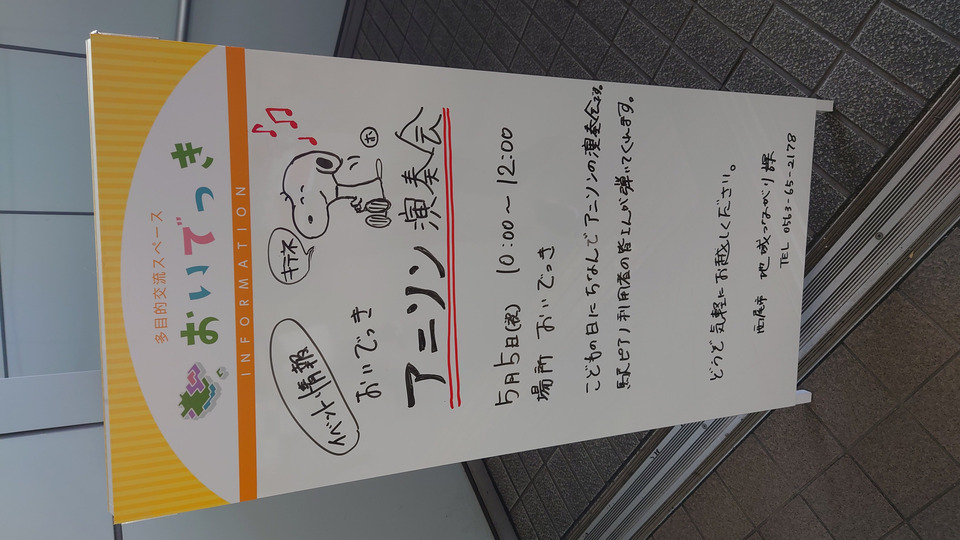 多目的交流スペース
おいでっき
INFORMATION
イベント情報
キテネ
お
おいでっき
アニソン演奏会
5月5日(祝) 10:00～12:00
場所 おいでっき
こどもの日にちなんでアニソンの演奏会
駅ピアノ利用者の皆さんが弾いてくれます。
どうぞ気軽にお越しください。
西尾市 地域つながり課
TEL 0563-65-2178